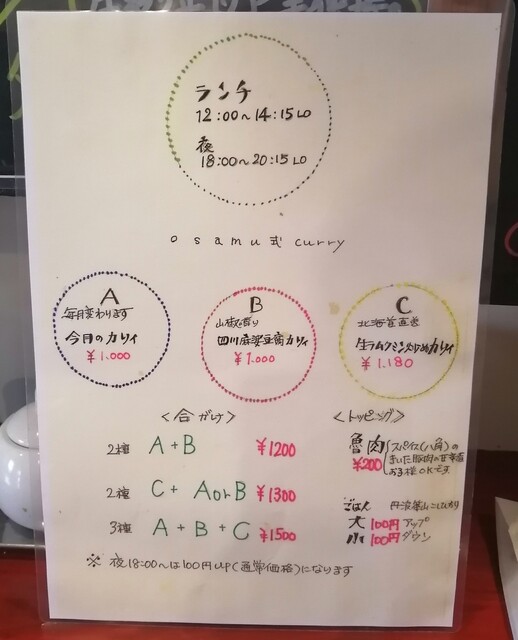 ランチ
12:00〜14:15 LO
夜
18:00〜20:15 LO
osamu式curry
A
毎月変わります
今月のカリィ
¥1.000
B
山椒香り
四川麻婆豆腐カリィ
¥1.000
C
北海道直営
生ラムクミン炒めカリィ
¥1.180
<合がけ>
2種 A+B ¥1200
2種 C+ AorB ¥1300
3種 A+B+C ¥1500
<トッピング>
魯肉
¥200
スパイス(八角)の
きいた豚肉の甘辛煮
お子様OKです
ごはん 丹波篠山こしひかり
大 100円アップ
小 100円ダウン
※ 夜18:00〜は100円UP(通常価格)になります